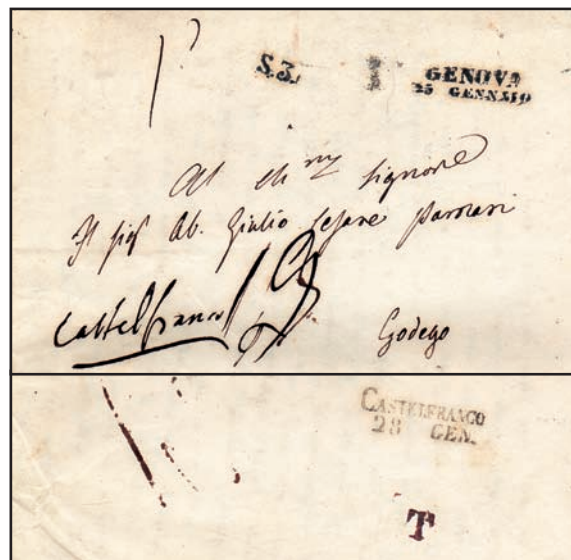 S.3. GENOVA
25 GENNAIO
Al signore
Il sig Ab. Giulio Cesare Parolari
Castelfranco
Godego
CASTELFRANCO
28 GEN.
T